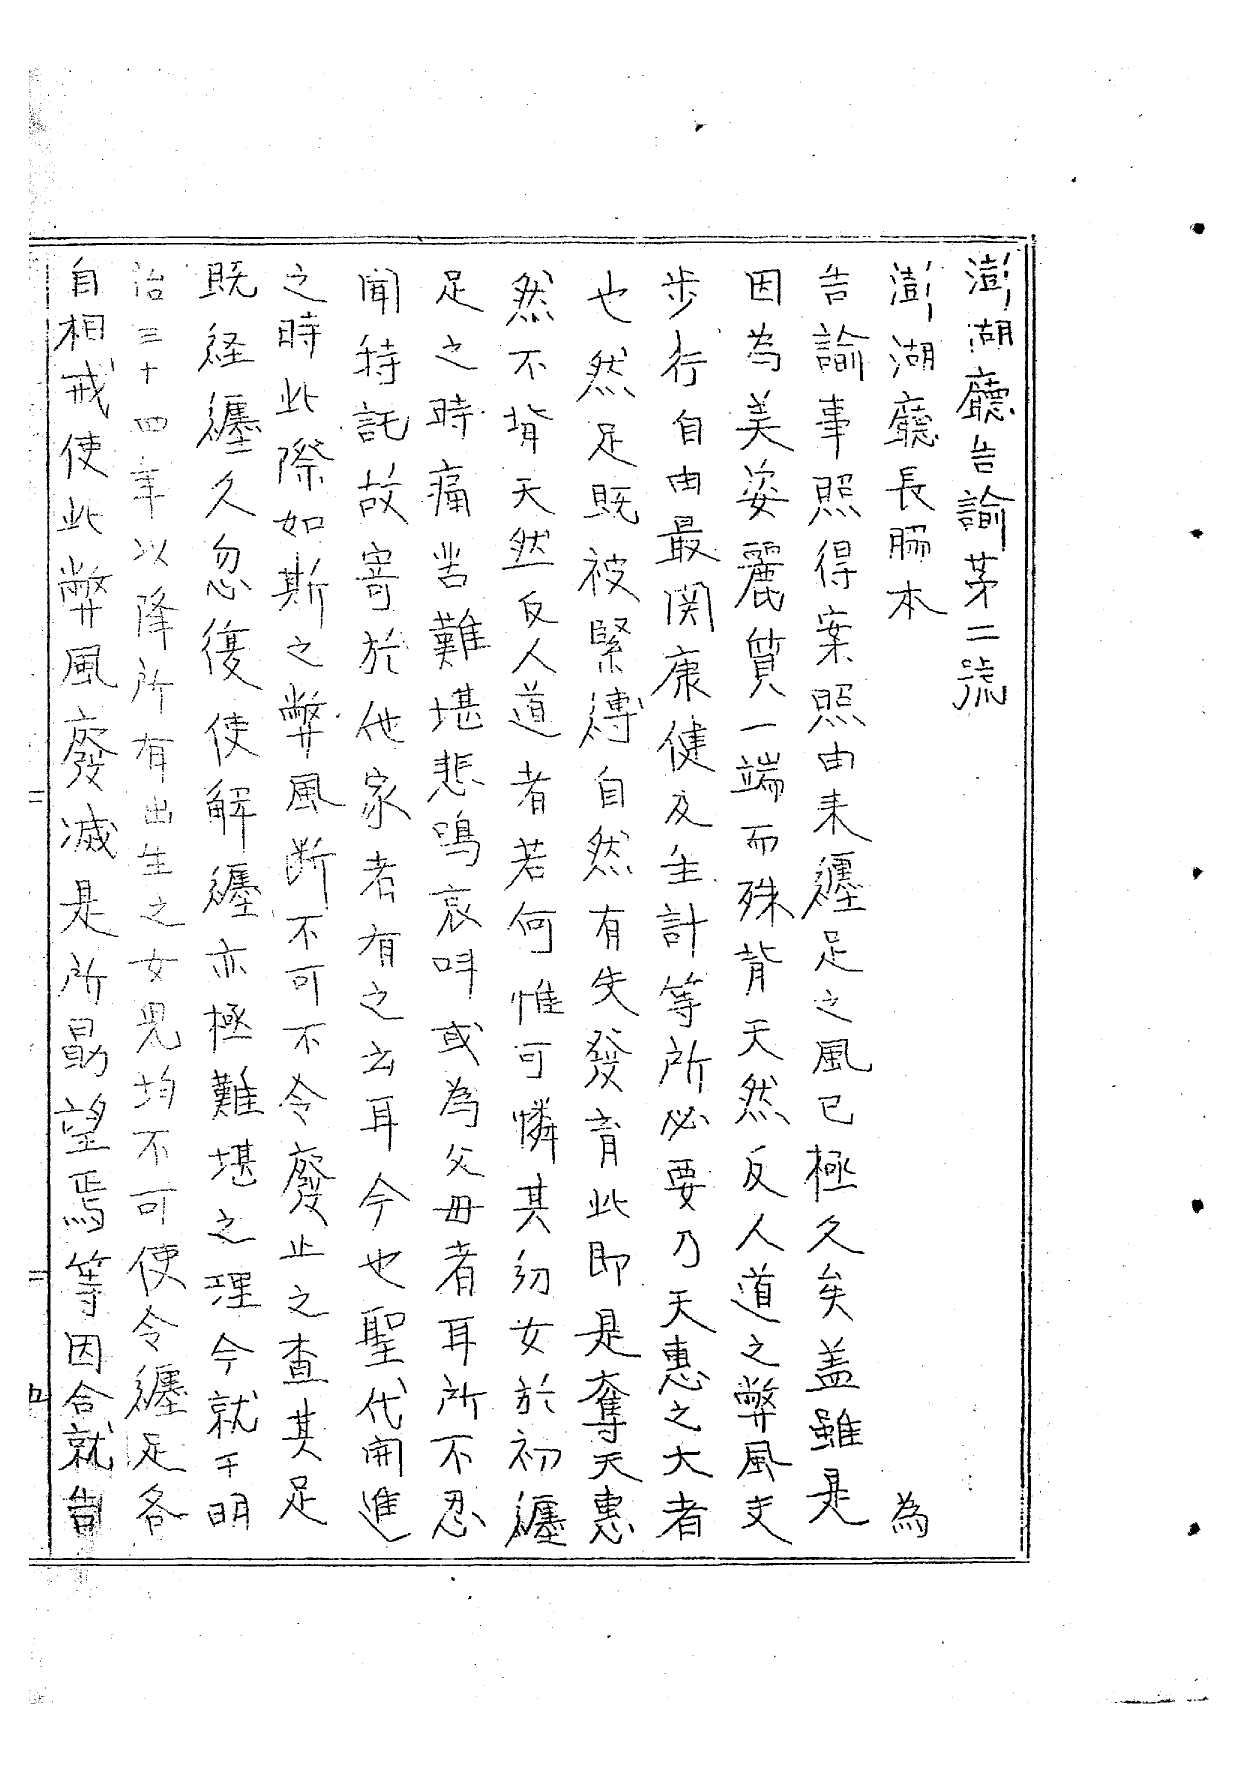 澎湖廳告諭茅二號
澎湖廳長脇本 為
告諭事照得案照由来纏足之風已極久矣盖雖是
因為美姿麗質一端而殊背天然反人道之弊風支
步行自由最関康健及生計等所必要乃天惠之大者
也然足既被緊縛自然有失發育此即是奪天惠
然不背天然反人道者若何惟可憐其幼女於初纏
足之時痛苦難堪悲鳴哀呌或為父毋者耳所不忍
聞特託故寄於他家者有之云耳今也聖代開進
之時此際如斯之弊風断不可不令廢止之查其足
既経纏久忽復使解纏亦極難堪之理今就于明
治三十四年以降所有出生之女児均不可使令纏足各
自相戒使此弊風廢滅是所勗望焉等因合就告